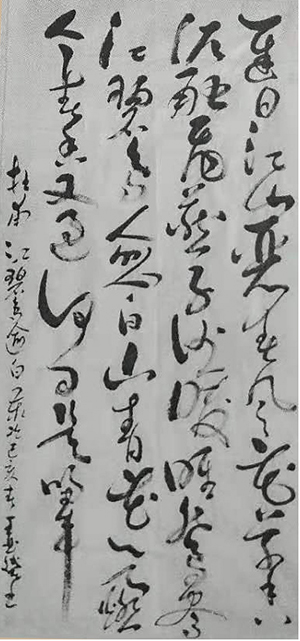 遲日江山麗春風花草香
泥融飛燕子沙暖睡鴛鴦
江碧鳥逾白山青花欲燃
今春看又過何日是歸年
杜甫江碧鳥逾白己亥春